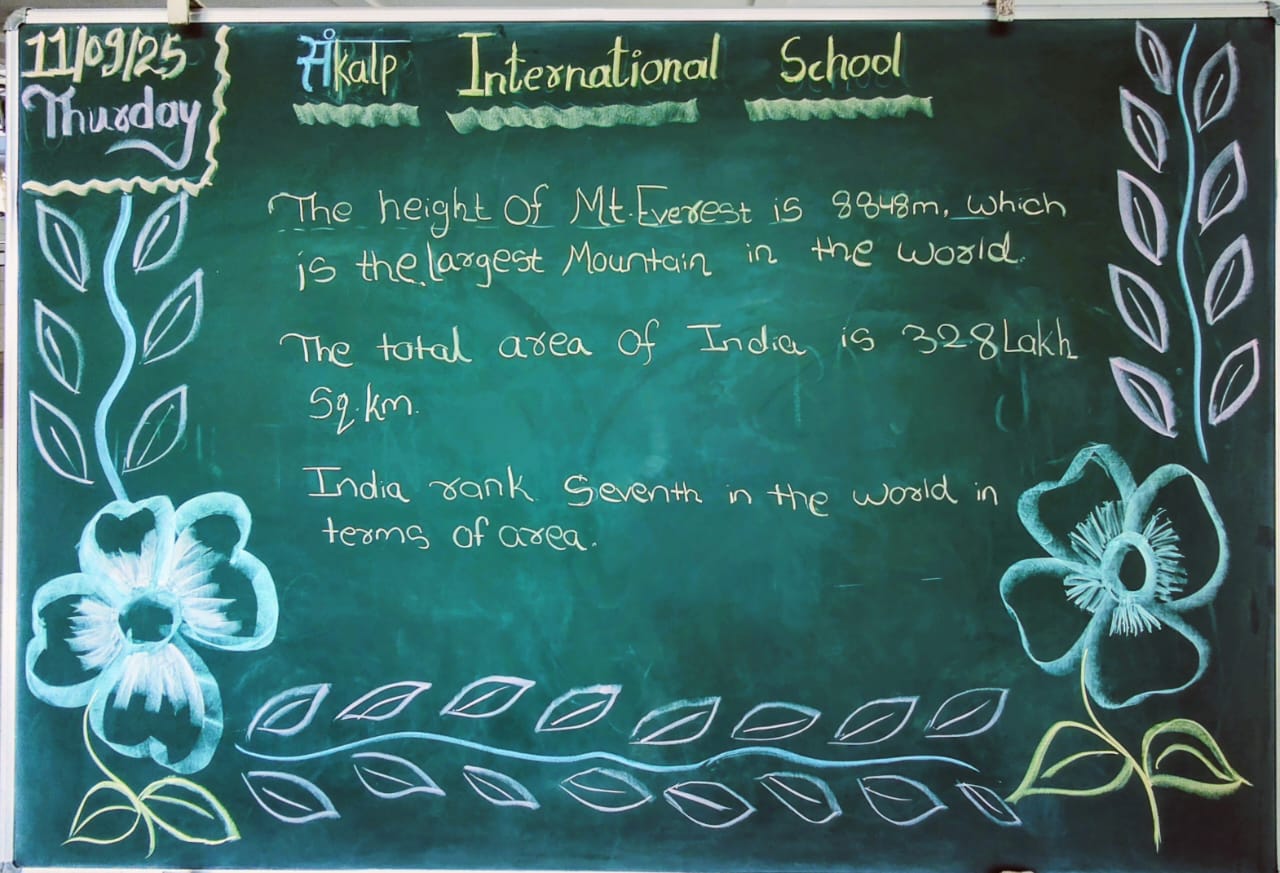 11/09/25
Thursday
संkalp International School
The height of Mt. Everest is 8848m, which
is the largest Mountain in the world.
The total area of India is 328 Lakh
Sq. km.
India rank Seventh in the world in
terms of area.